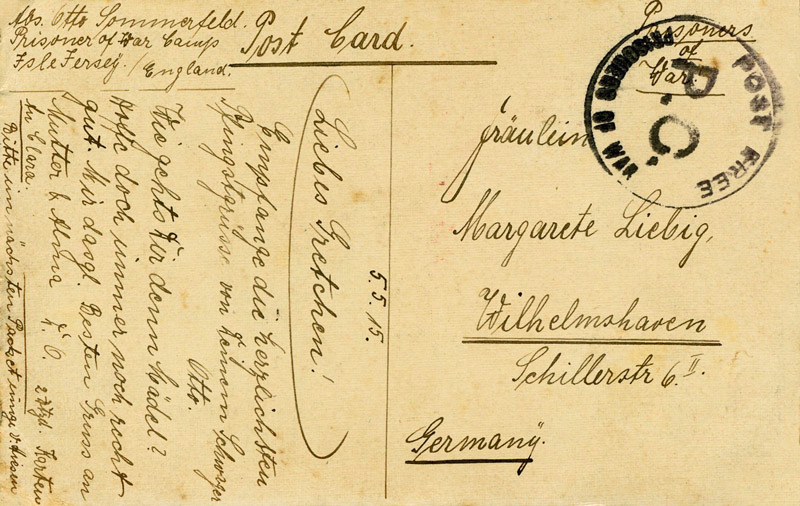 Abs. Otto Sommerfeld.
Prisoner of War Camp
Isle Jersey.
England.
Post Card.
Prisoners
of
War.
PRISONERS OF WAR
POST FREE
P.C.
5.5.15.
Liebes Gretchen!
Empfange die herzlichsten
Pfingstgrüsse von Deinem Schwager
Otto.
Wie gehts Dir denn Mädel?
Hoffe doch immer noch recht
gut. Mir dasgl. Besten Gruss an
Mutter & Alma
An Clara
2 Karten
Bitte im nächsten Packet
Fräulein
Margarete Liebig,
Wilhelmshaven
Schillerstr 6 II.
Germany.